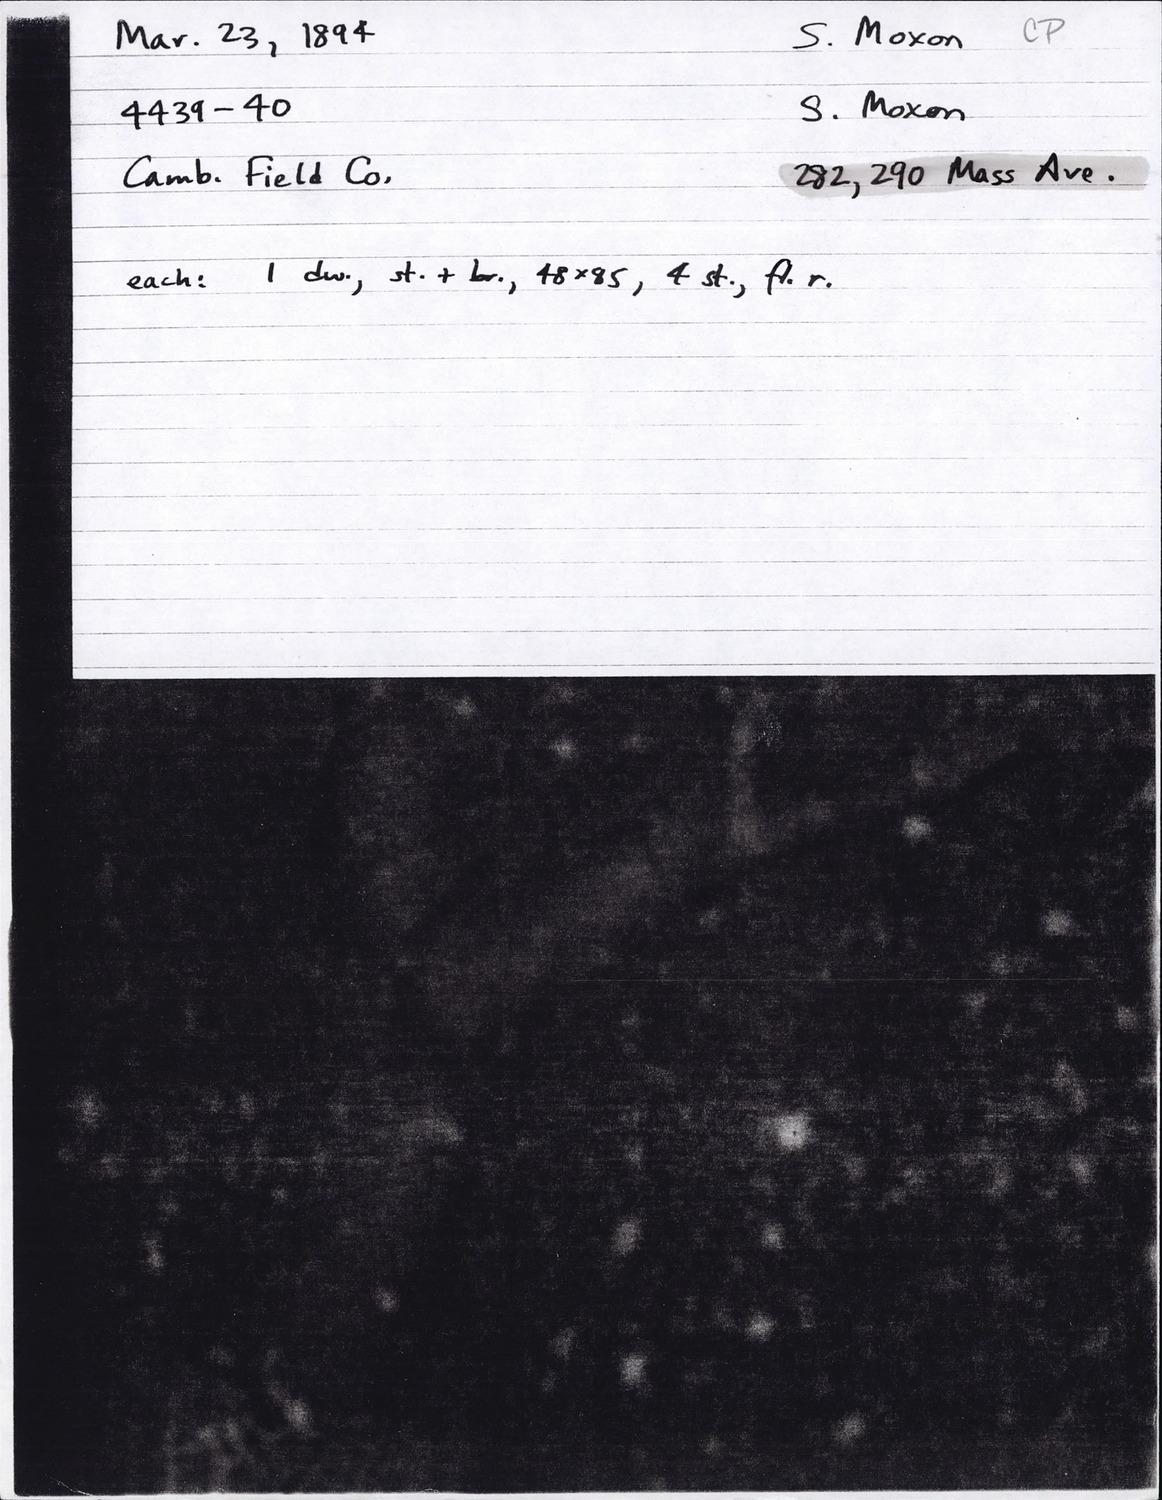 Mar. 23, 1894 S. Moxon CP
4439-40 S. Moxon
Camb. Field Co. 282, 290 Mass Ave.
each: 1 dw., st. + br., 48x85, 4 st., fl. r.